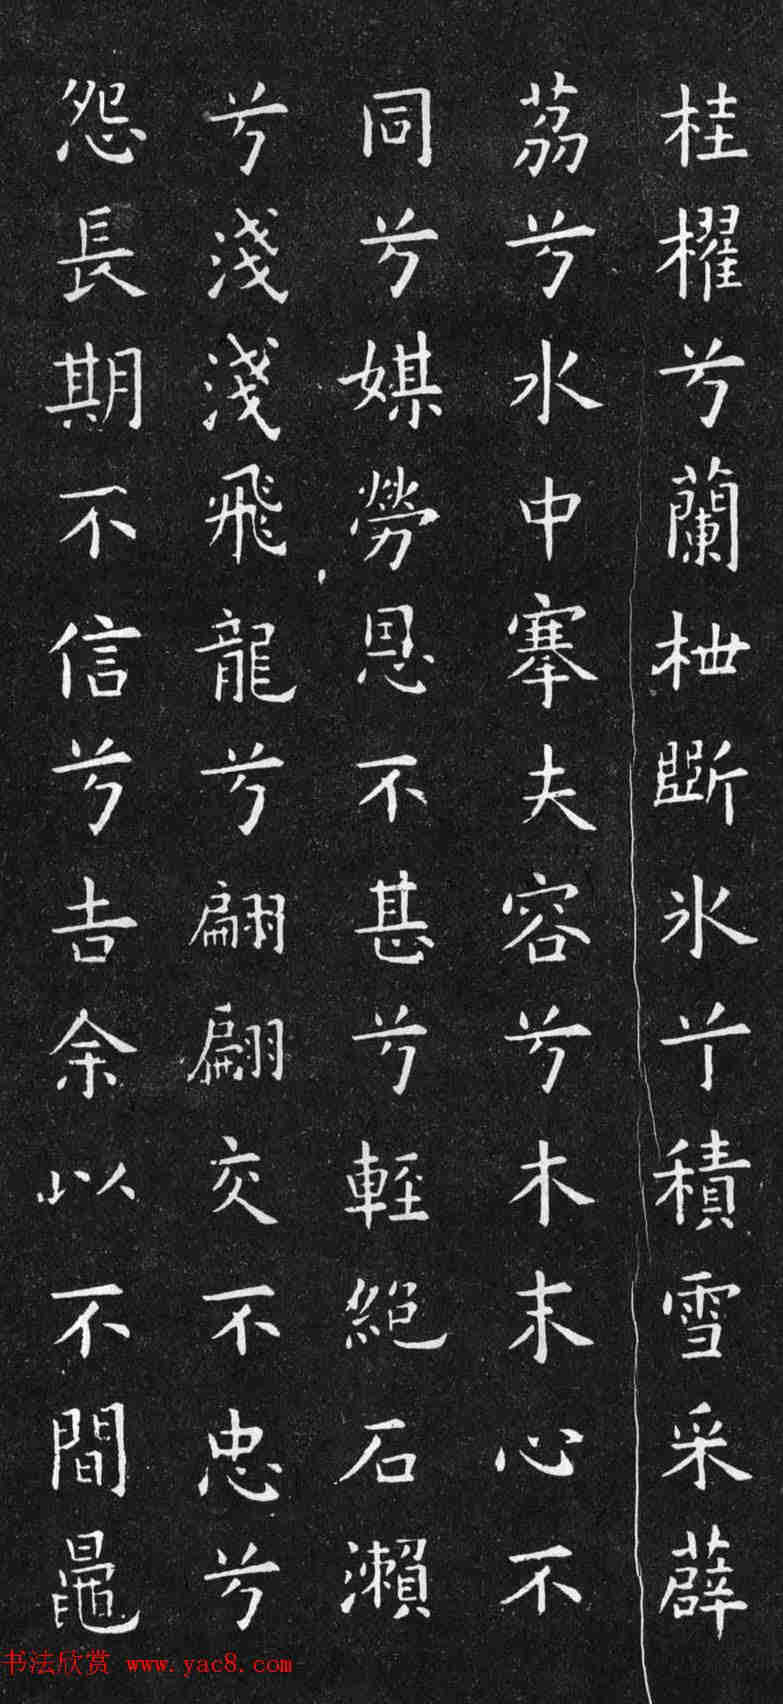 桂櫂兮蘭枻斲氷兮積雪采薜
荔兮水中搴夫容兮木末心不
同兮媒勞恩不甚兮輕絕石瀨
兮淺淺飛龍兮翩翩交不忠兮
怨長期不信兮告余以不閒鼂
书法欣赏 www.yac8.com